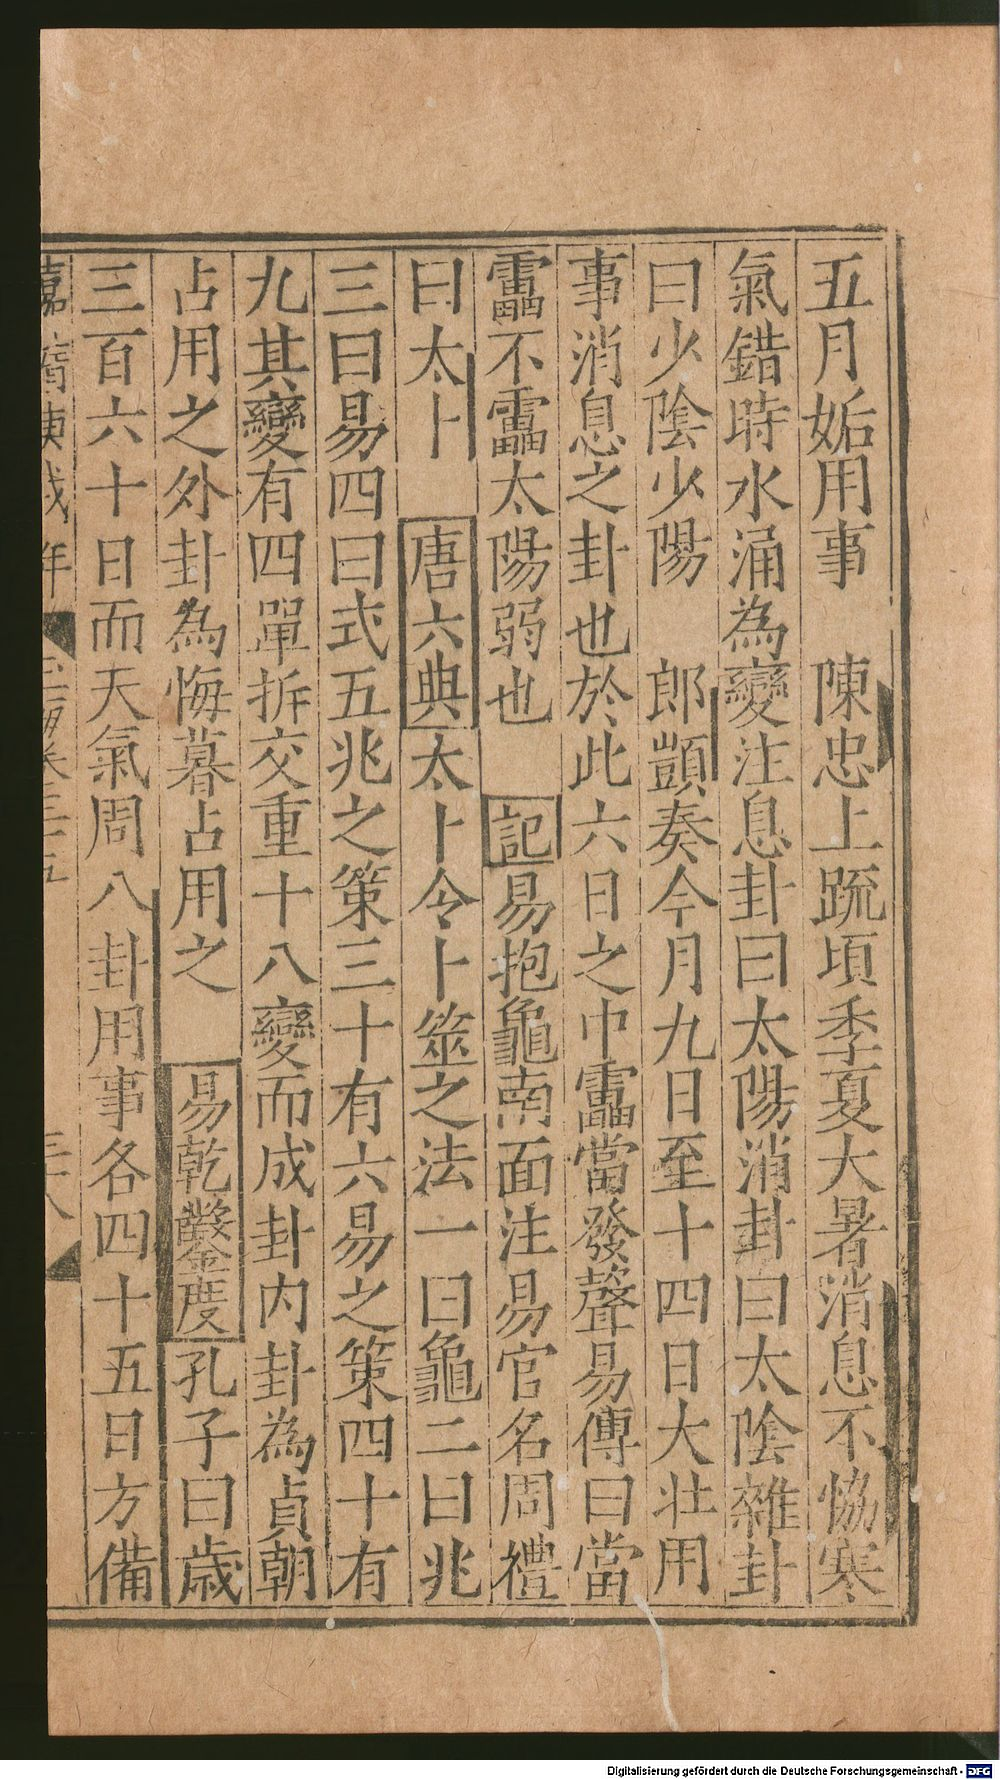 五月姤用事　陳忠上疏頃季夏大暑消息不恊寒
氣錯時水涌為變注息卦曰太陽消卦曰太陰雜卦
曰少陰少陽　郎顗奏今月九日至十四日大壮用
事消息之卦也於此六日之中靁當發聲易傳曰當
靁不靁太陽弱也　記易抱龜南面注易官名周禮
曰太卜　唐六典太卜令卜筮之法一曰龜二曰兆
三曰易四曰式五兆之策三十有六易之策四十有
九其變有四單拆交重十八變而成卦内卦為貞朝
占用之外卦為悔暮占用之　易乾鑿度孔子曰歳
三百六十日而天氣周八卦用事各四十五日方備
嘉靖庚戌年
Digitalisierung gefördert durch die Deutsche Forschungsgemeinschaft - DFG